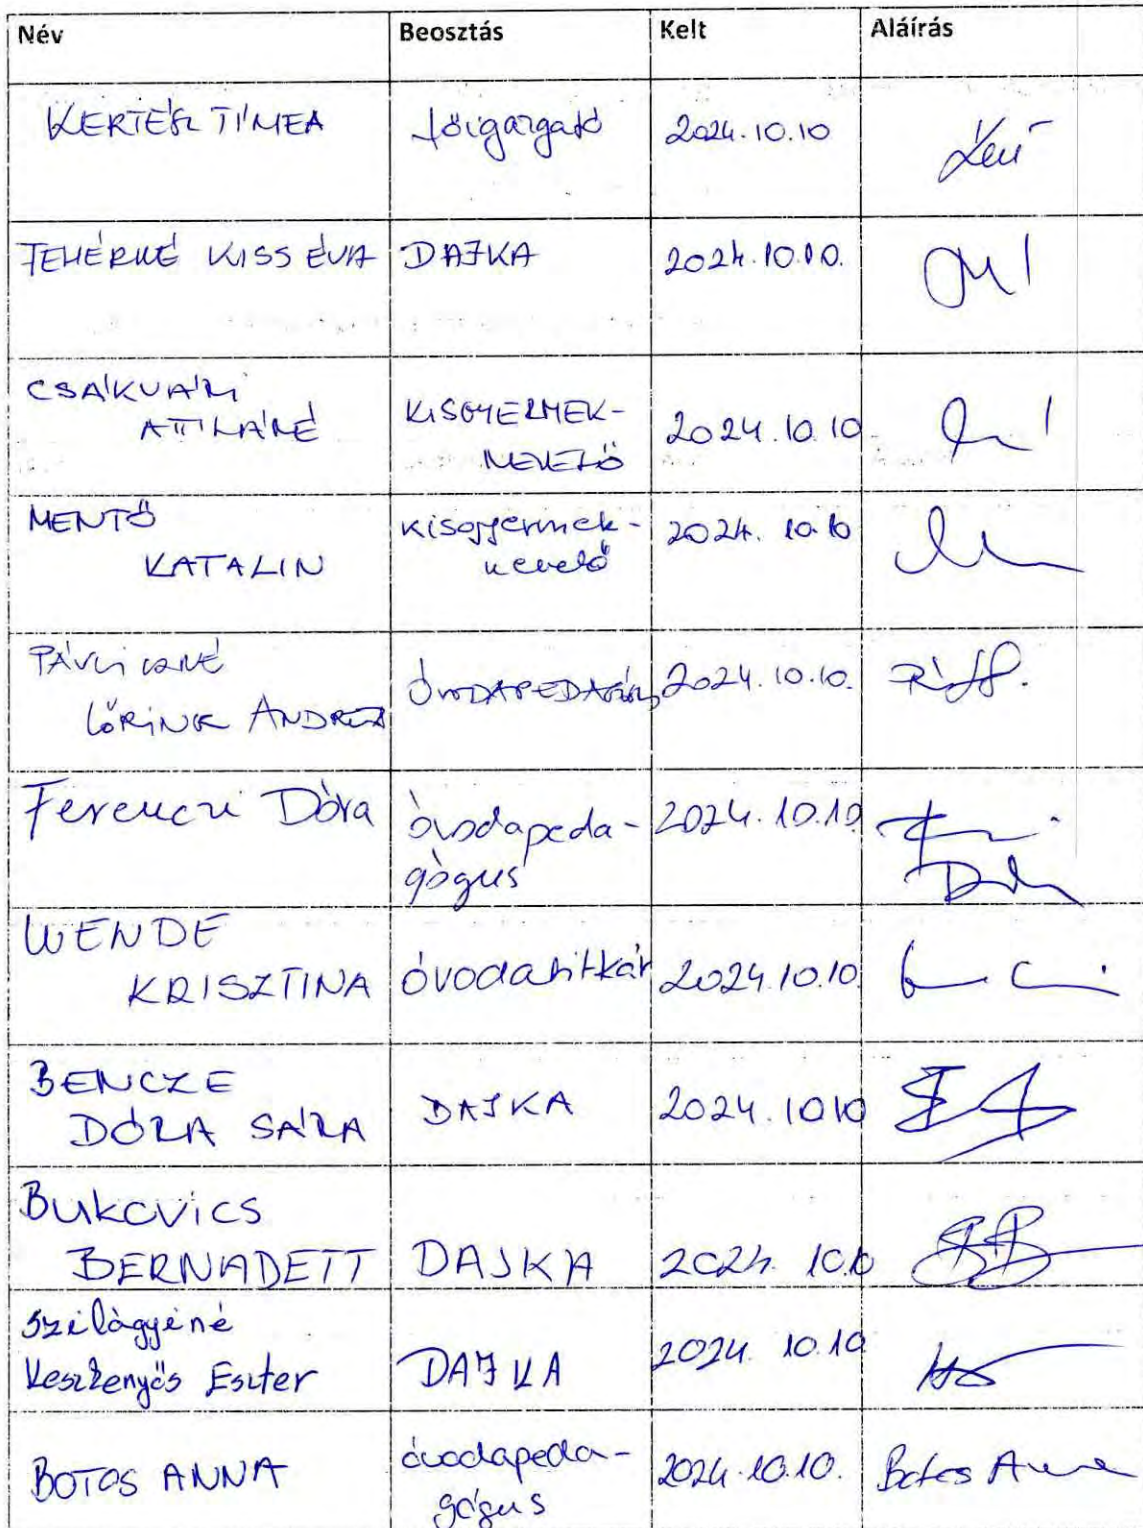 Név Beosztás Kelt Aláírás
KERTÉSZ TÍMEA főigazgató 2024.10.10
FEHÉRNÉ KISS ÉVA DAJKA 2024.10.10.
CSÁKVÁRI
ATTILÁNÉ
KISGYERMEK-
NEVELŐ
2024.10.10.
MENTŐ
KATALIN
kisgyermek-
nevelő
2024. 10.10
LŐRINK ANDREA
ÓVODAPEDAGÓGUS 2024.10.10.
Ferenczi Dóra
óvodapeda-
gógus
2024.10.10.
WENDE
KRISZTINA
óvodatitkár 2024.10.10.
BENCZE
DÓRA SÁRA
DAJKA 2024.10.10
BUKOVICS
BERNADETT
DAJKA 2024. 10.10
Szilágyiné
Keszkenyős Eszter
DAJKA 2024. 10.10
BOTOS ANNA
óvodapeda-
gógus
2024.10.10. Botos Anna